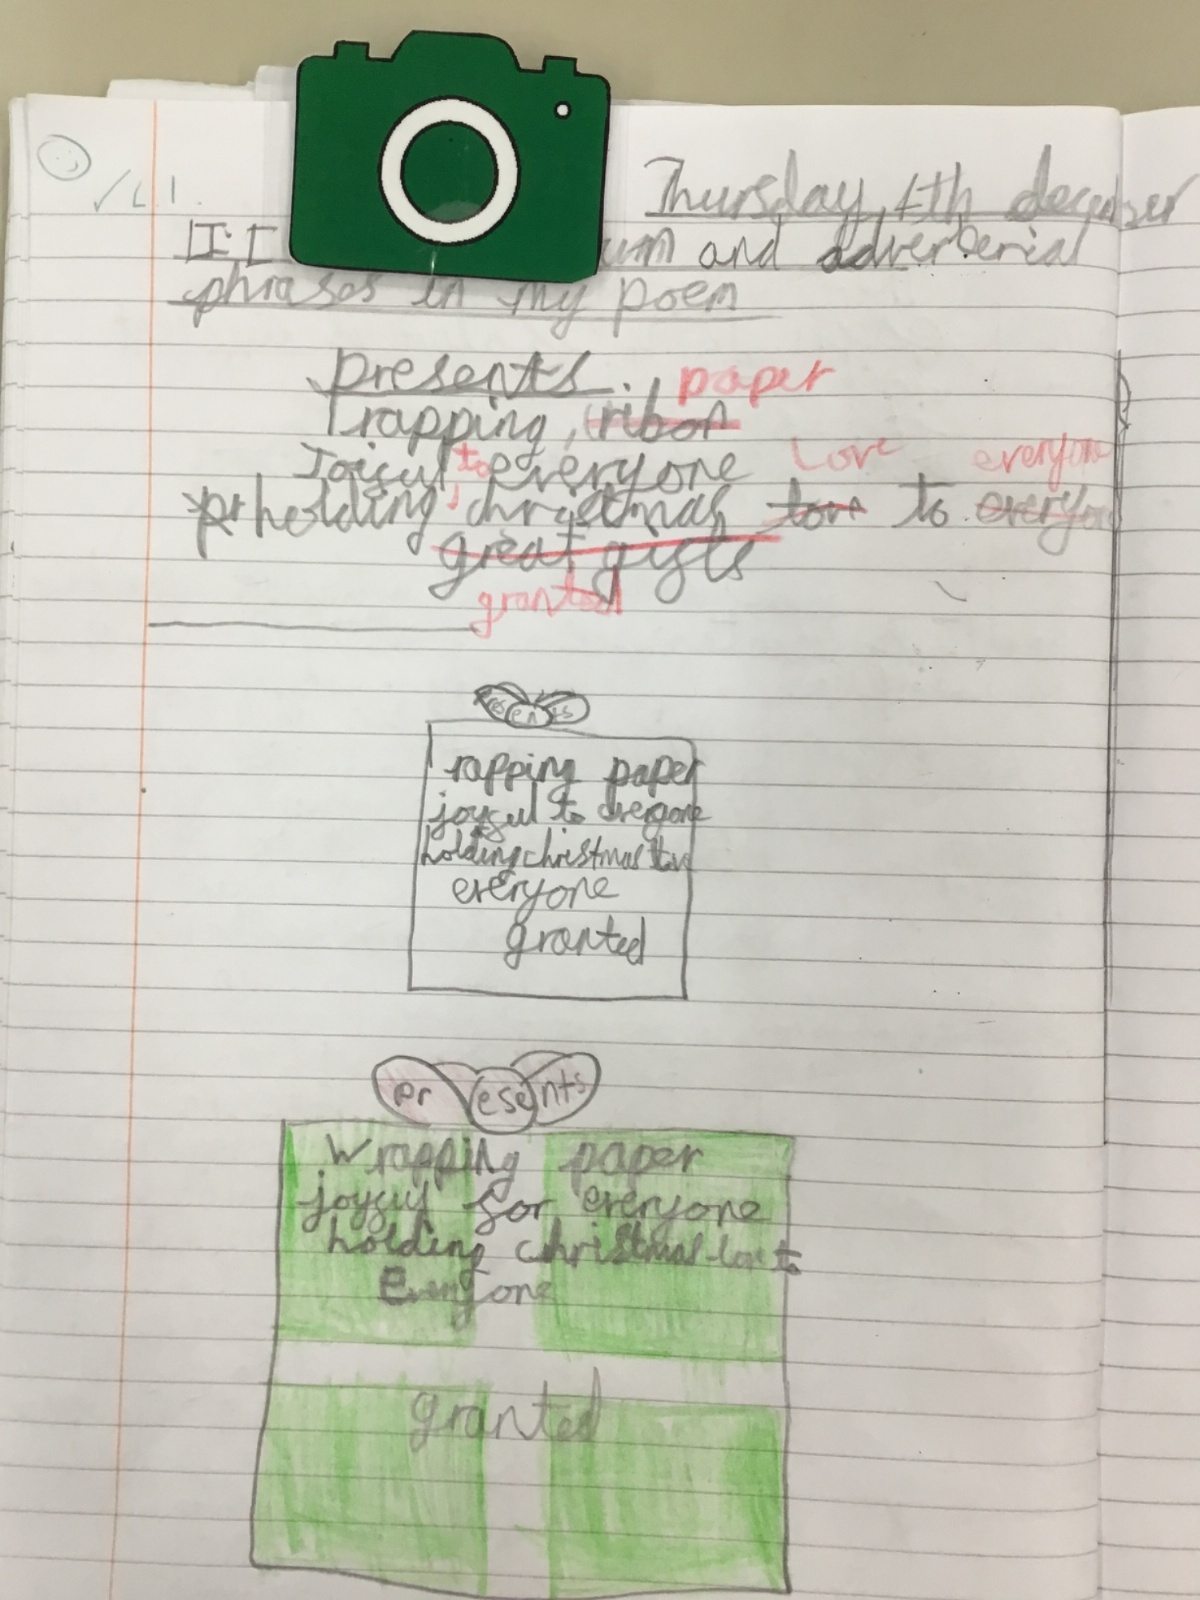 /L.I.
Thursday, 4th december
and adverberial
phrases in my poem
presents.
paper
rapping, ribon
Joisful to everyone
Love everyone
holding christmas love to everyone
great gifts
granted
resents
rapping paper
joyful to everyone
holding christmas
everyone
granted
presents
Wrapping paper
joyful for everyone
holding christmas love to
Everyone
granted